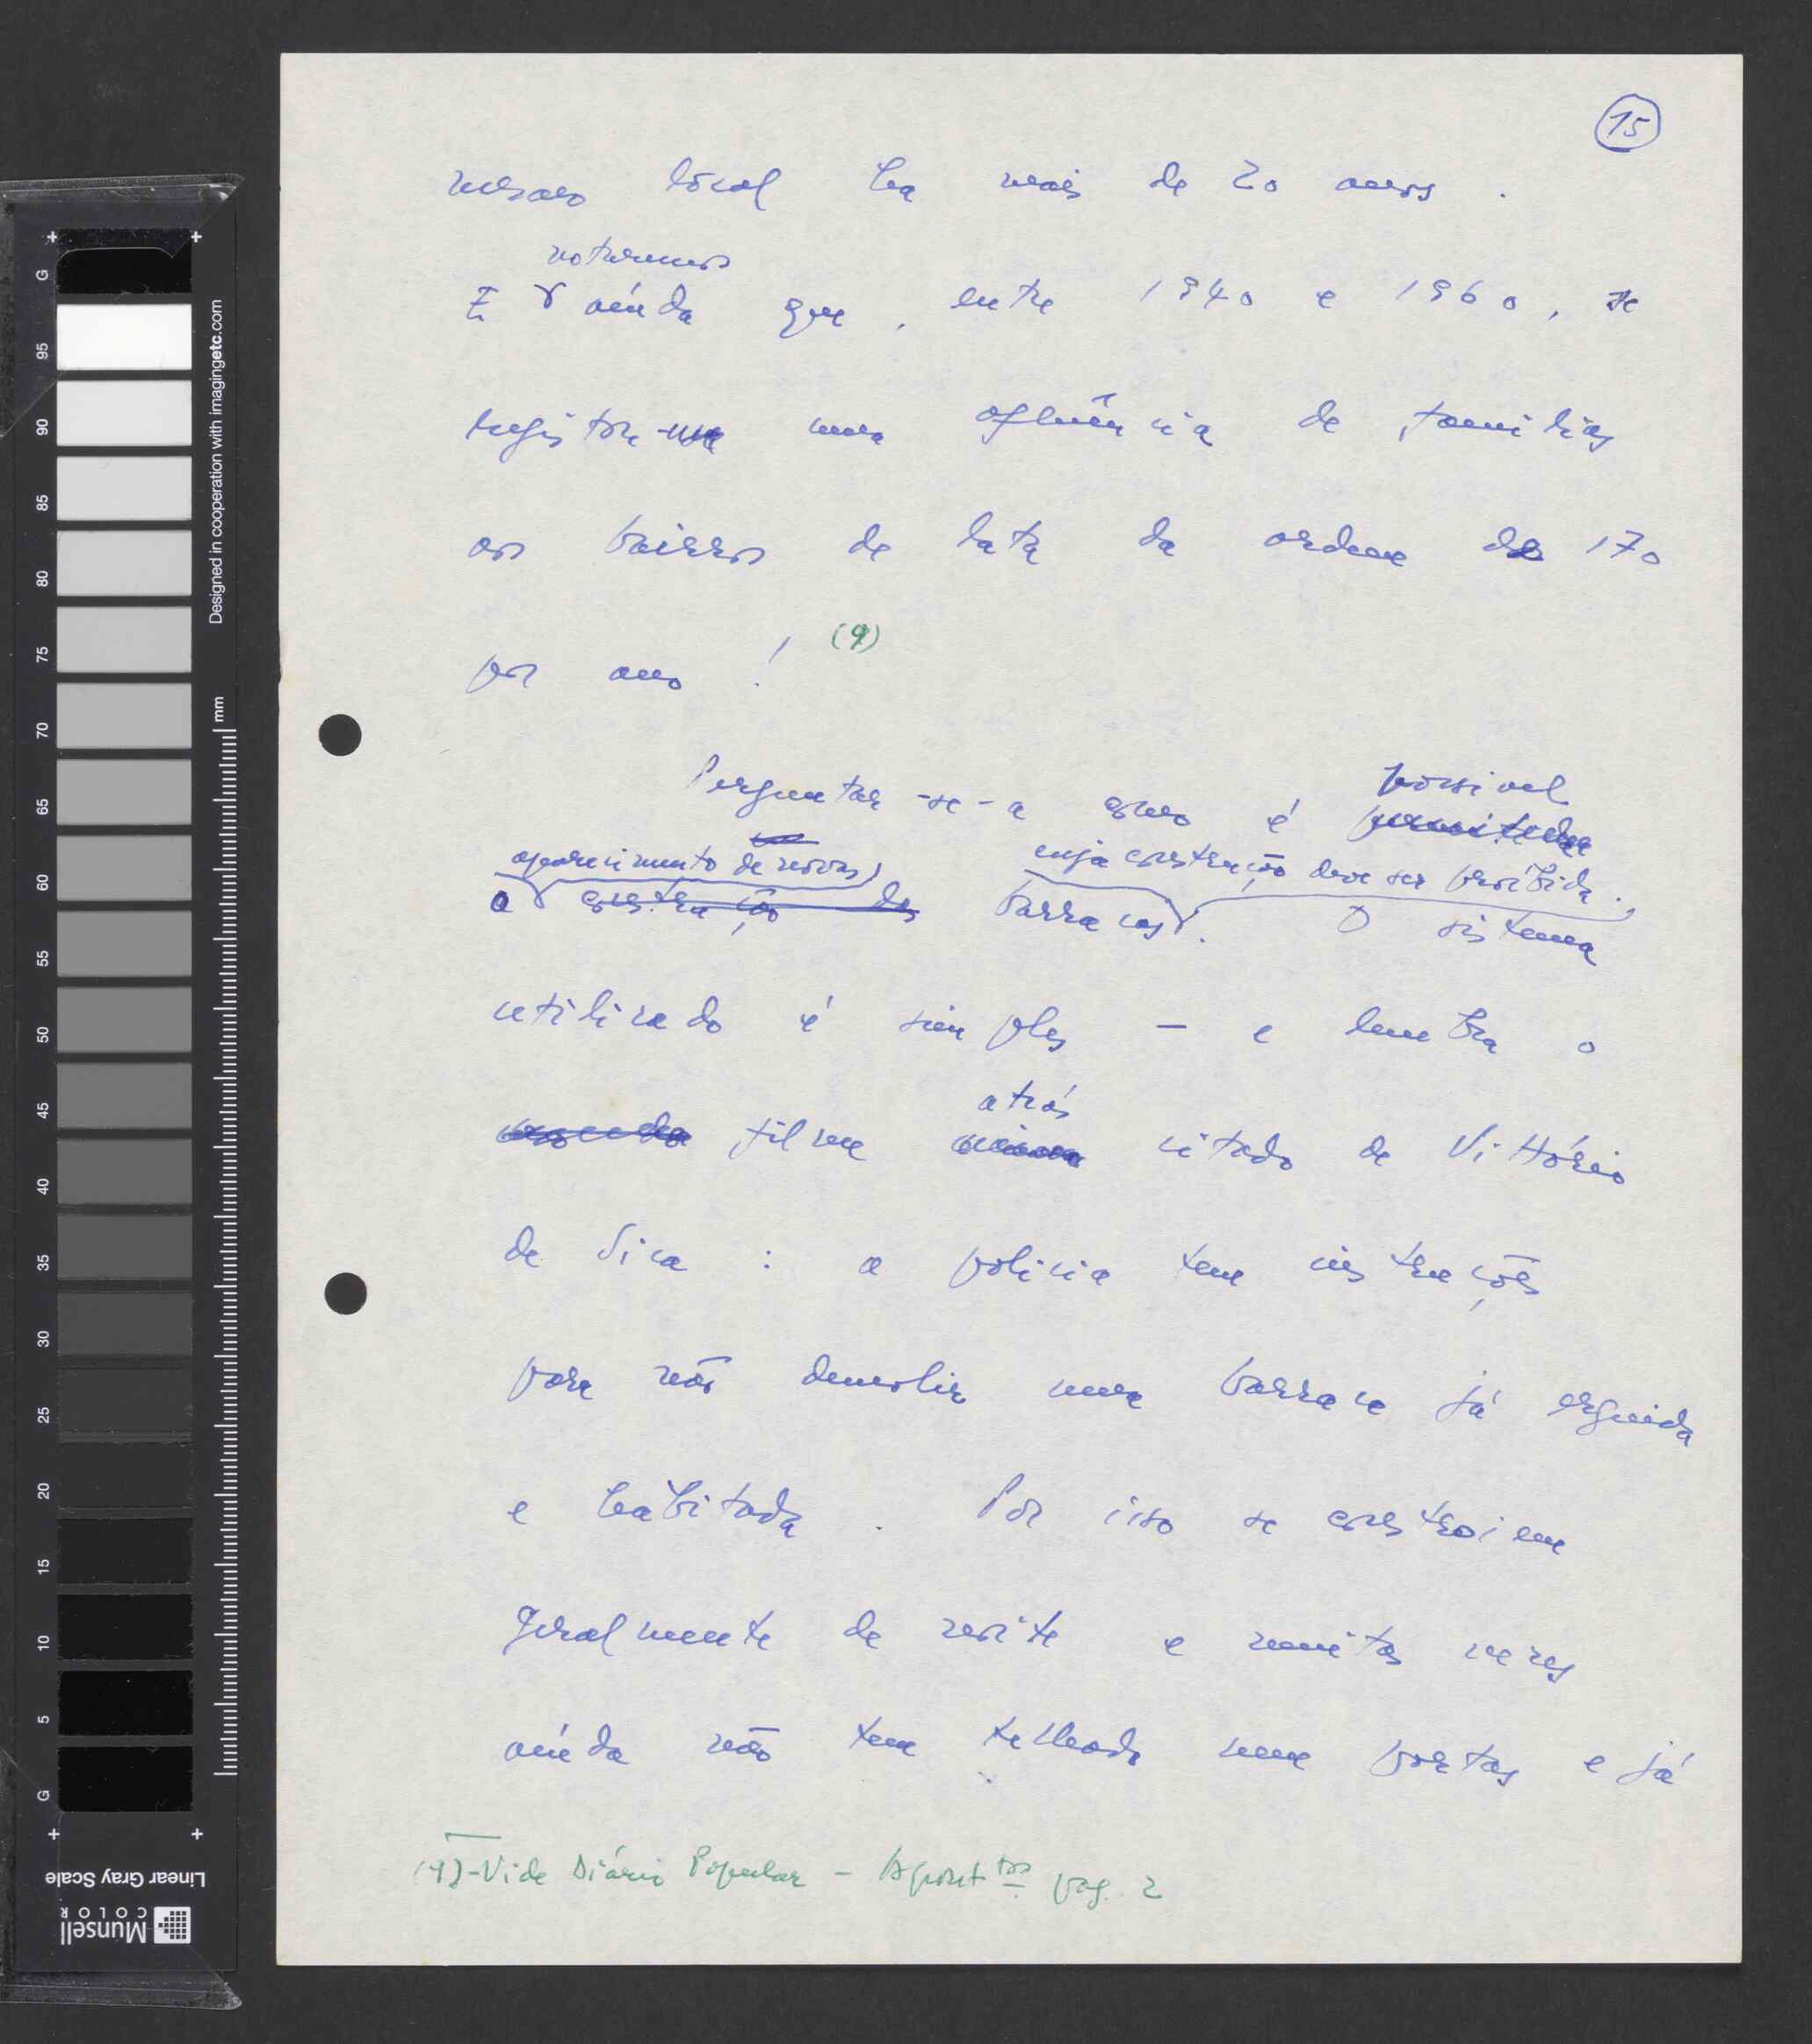 15
mesmo local ha mais de 20 anos.
notemos
E ainda que, entre 1940 e 1960, se
registou uma afluência de familias
aos bairros de lata da ordem das 170
por ano! (9)
Perguntar-se-a como é possivel
permitida
aparecimento de novas cuja construção deve ser proibida.
o construção das barracas. O sistema
utilizado é simples – e lembra o
atrás
filme citado de Vittório
de Sica: a policia tem instruções
para não demolir uma barraca já erguida
e habitada. Por isso se constroiem
geralmente de noite e muitas vezes
ainda não tem telhado nem portas e já
(9)-Vide Diário Popular – Apont.tos pag. 2
G 95 90 85 80 75 70 65 60 55 50 45 40 35 30 25 20 15 10 5 G
Designed in cooperation with imagingetc.com
mm
Linear Gray Scale
Munsell
COLOR